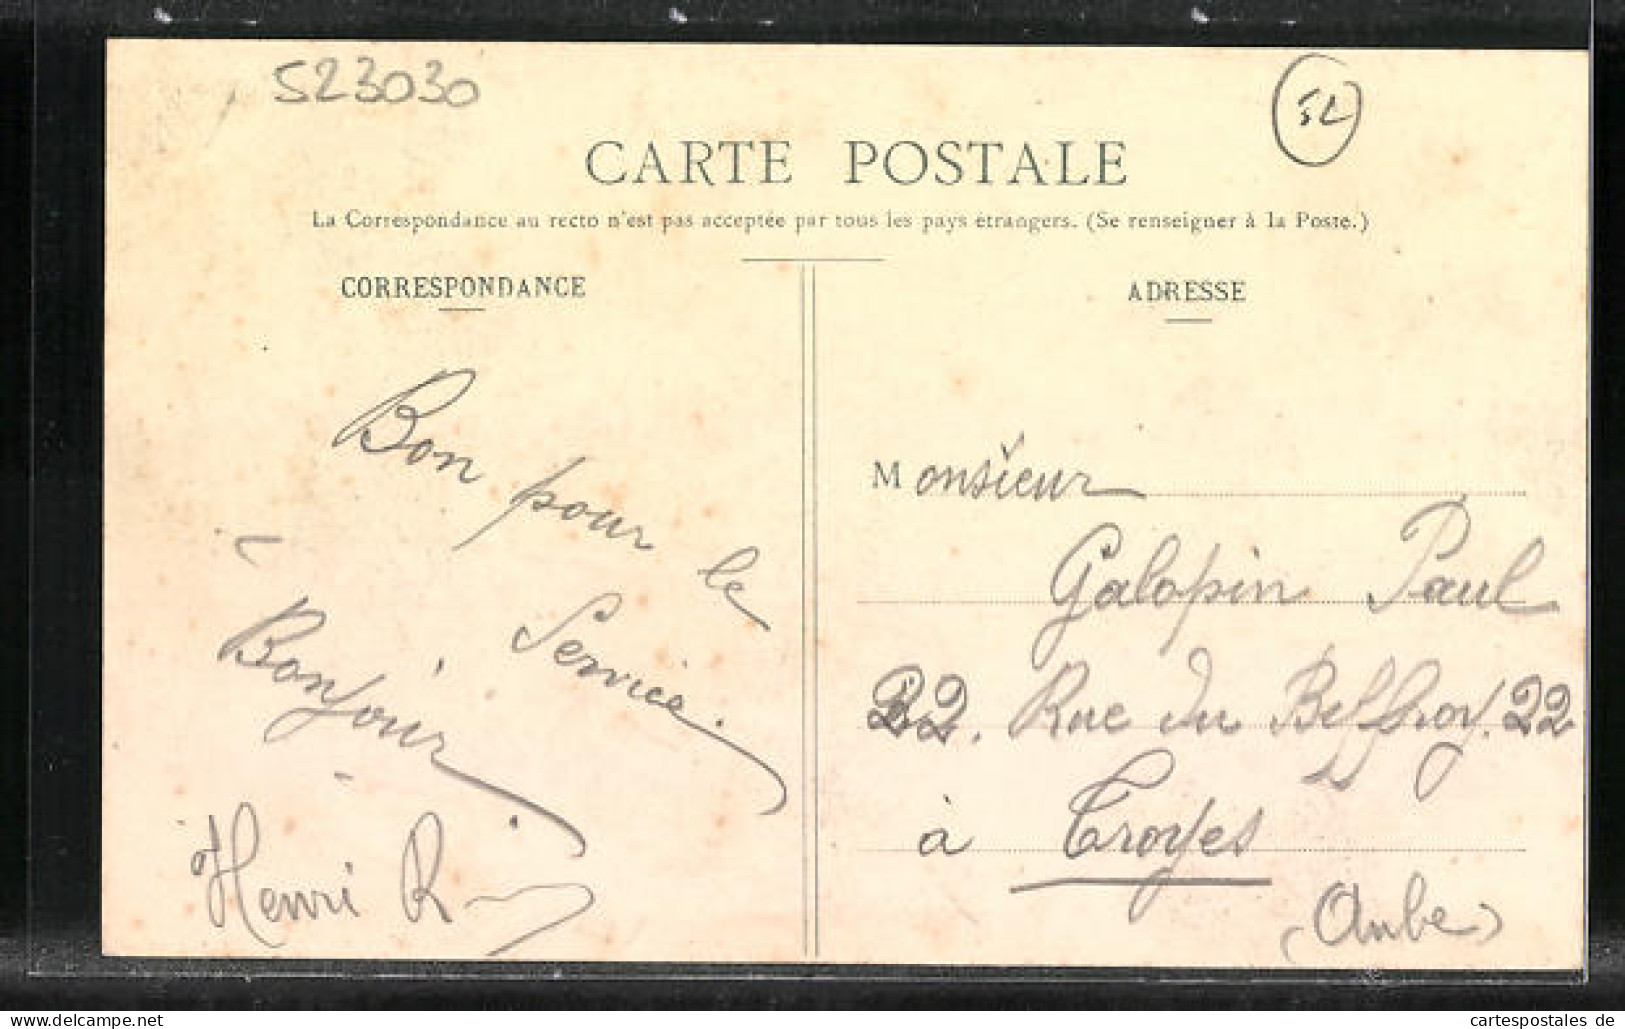 523030
52
CARTE POSTALE
La Correspondance au recto n'est pas acceptée par tous les pays étrangers. (Se renseigner à la Poste.)
CORRESPONDANCE
Bon pour le
Service.
Bonjour
Henri R
ADRESSE
Monsieur
Galopin Paul
22, Rue du Beffroy. 22
à Troyes
(Aube)
your-pictures
cartespostales de